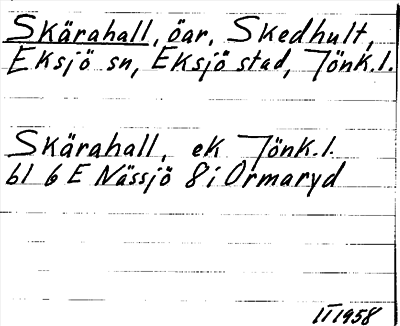 Skärahall, öar, Skedhult,
Eksjö sn, Eksjö stad, Jönk.l.
Skärahall, ek Jönk.l.
bl 6 E Nässjö 8 i Ormaryd
II 1958